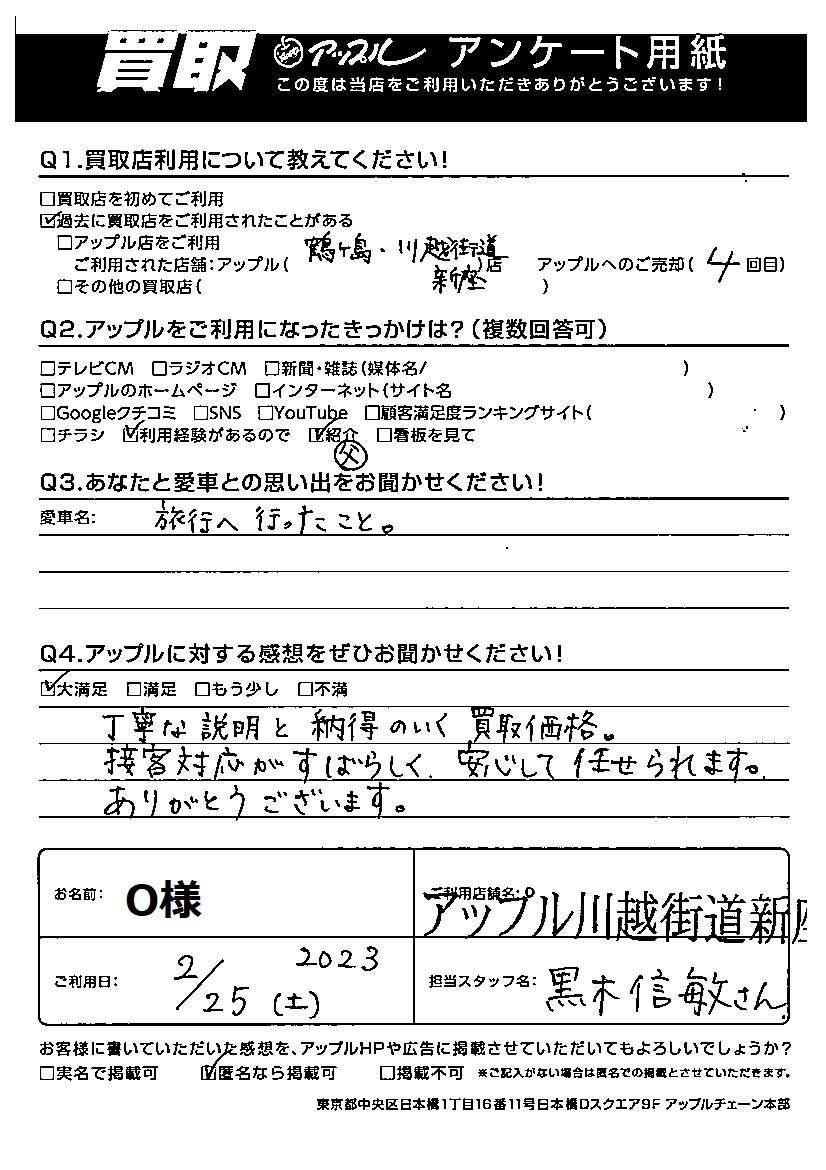 買取 アップル アンケート用紙
この度は当店をご利用いただきありがとうございます!
Q1.買取店利用について教えてください!
□買取店を初めてご利用
☑過去に買取店をご利用されたことがある
□アップル店をご利用 鶴ヶ島・川越街道
ご利用された店舗:アップル( 新座 )店 アップルへのご売却( 4 回目)
□その他の買取店( )
Q2.アップルをご利用になったきっかけは?(複数回答可)
□テレビCM □ラジオCM □新聞・雑誌(媒体名/ )
□アップルのホームページ □インターネット(サイト名 )
□Googleクチコミ □SNS □YouTube □顧客満足度ランキングサイト( )
□チラシ ☑利用経験があるので ☑紹介 □看板を見て
父
Q3.あなたと愛車との思い出をお聞かせください!
愛車名: 旅行へ行ったこと。
Q4.アップルに対する感想をぜひお聞かせください!
☑大満足 □満足 □もう少し □不満
丁寧な説明と納得のいく買取価格。
接客対応がすばらしく、安心して任せられます。
ありがとうございます。
お名前: O様
ご利用店舗名:
アップル川越街道新座
ご利用日: 2/25 (土) 2023
担当スタッフ名: 黒木信敏さん
お客様に書いていただいた感想を、アップルHPや広告に掲載させていただいてもよろしいでしょうか?
□実名で掲載可 ☑匿名なら掲載可 □掲載不可 ※ご記入がない場合は匿名での掲載とさせていただきます。
東京都中央区日本橋1丁目16番11号日本橋Dスクエア9F アップルチェーン本部